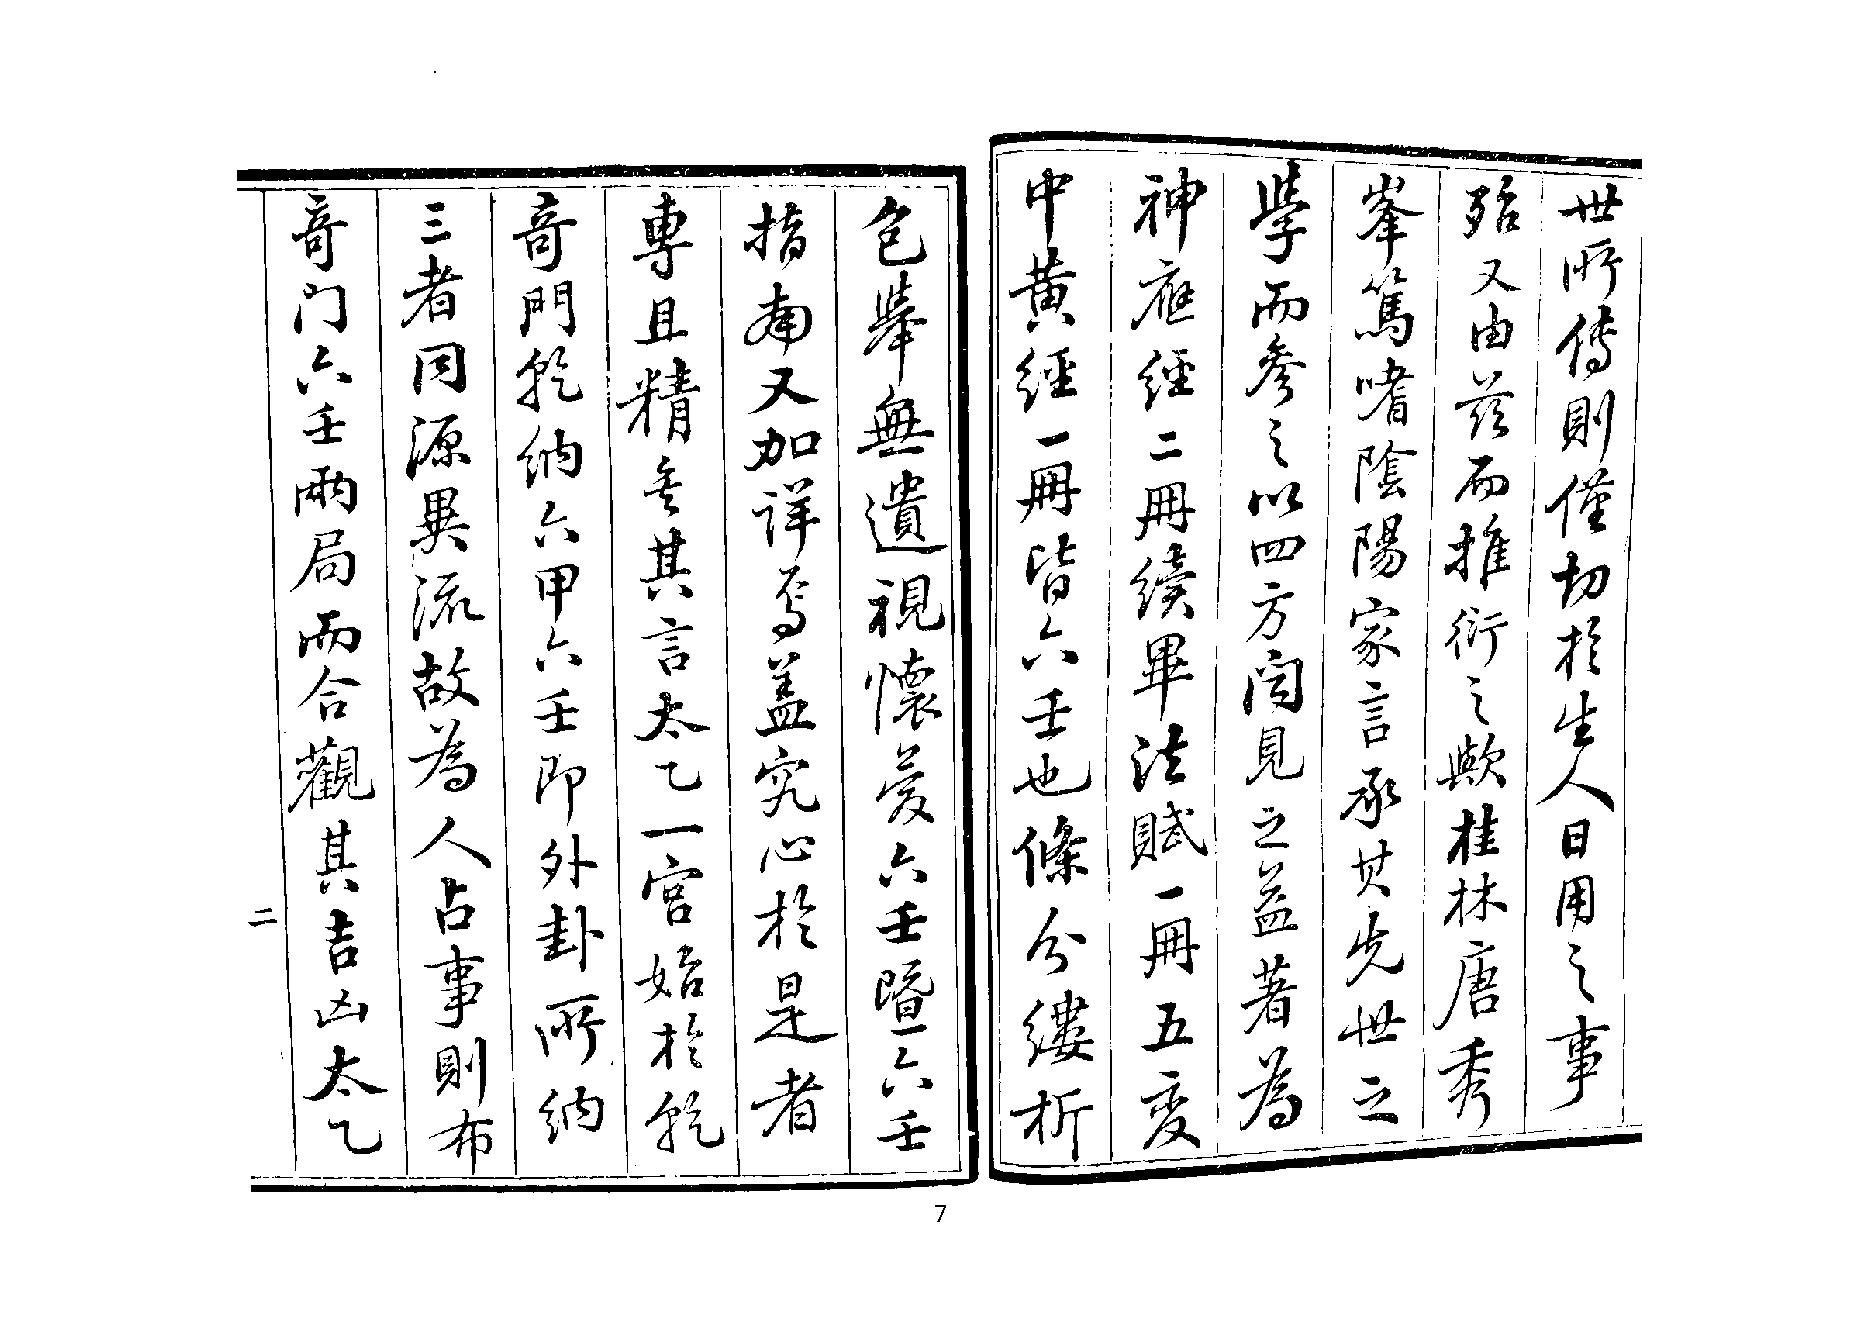 世所傳則僅切於生人日用之事
殆又由茲而推衍之歟桂林唐秀
峯篤嗜陰陽家言承其先世之
學而參之以四方闻見之益著為
神应經二冊續畢法賦一冊五变
中黄經一冊皆六壬也條分縷析
包舉無遺視懷菱六壬暨六壬
指南又加詳焉盖究心於是者
專且精矣其言太乙一宮始於乾
奇門乾納六甲六壬即外卦所納
三者同源異流故為人占事則布
奇门六壬兩局而合觀其吉凶太乙
二
7